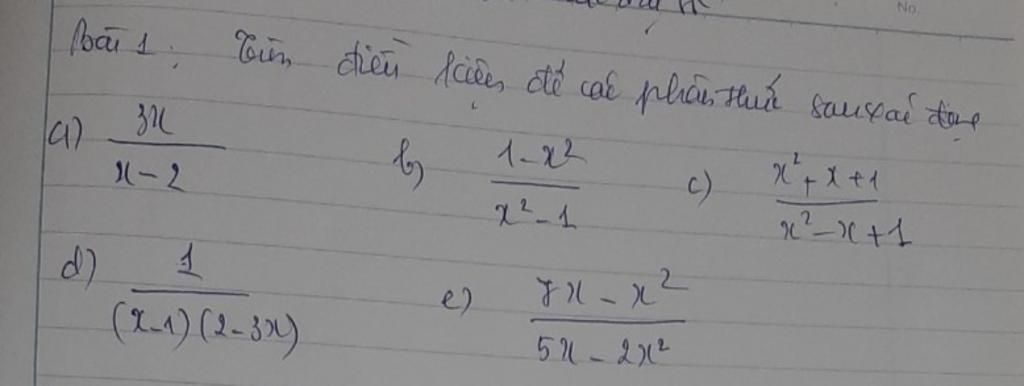 No.
Bài 1: Tìm điều kiện để các phân thức sau xác định
a) 3x / (x - 2)  b) (1 - x²) / (x² - 1)  c) (x² + x + 1) / (x² - x + 1)
d) 1 / ((x - 1)(2 - 3x))  e) (7x - x²) / (5x - 2x²)